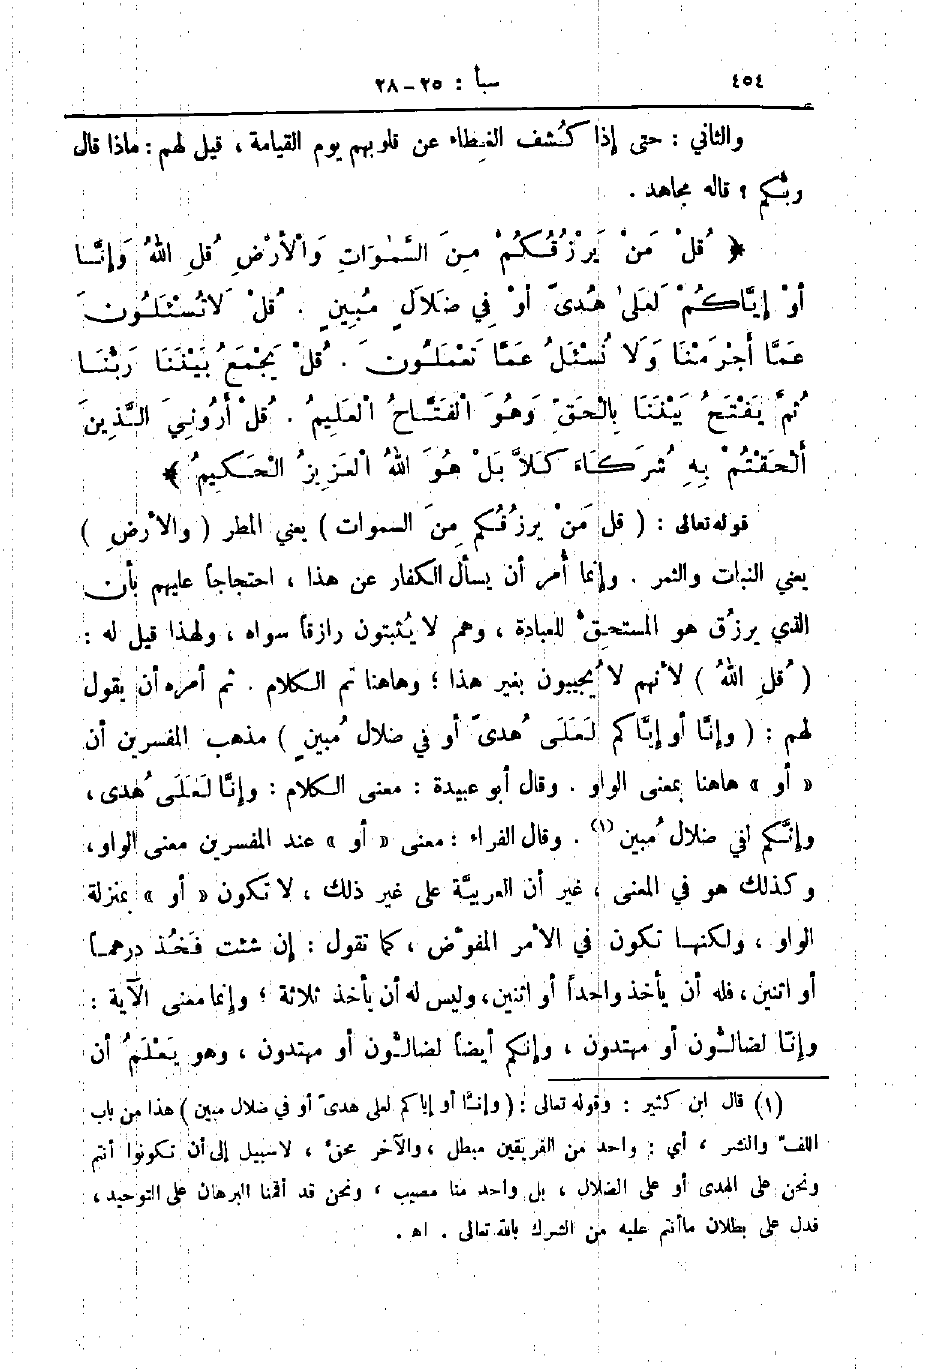 ٤٥٤ سبأ : ٢٥-٢٨
والثاني : حتى إذا كُشف الغطاء عن قلوبهم يوم القيامة ، قيل لهم : ماذا قال
ربُّكم ؟ قاله مجاهد .
﴿ قُلْ مَنْ يَرْزُقُكُمْ مِنَ السَّمٰوَاتِ وَالْأَرْضِ قُلِ اللهُ وَإِنَّا
أَوْ إِيَّاكُمْ لَعَلىٰ هُدىً أَوْ فِي ضَلَالٍ مُبِينٍ . قُلْ لَا تُسْئَلُونَ
عَمَّا أَجْرَمْنَا وَلَا نُسْئَلُ عَمَّا تَعْمَلُونَ . قُلْ يَجْمَعُ بَيْنَنَا رَبُّنَا
ثُمَّ يَفْتَحُ بَيْنَنَا بِالْحَقِّ وَهُوَ الْفَتَّاحُ الْعَلِيمُ . قُلْ أَرُونِيَ الَّذِينَ
أَلْحَقْتُمْ بِهِ شُرَكَاءَ كَلَّا بَلْ هُوَ اللهُ الْعَزِيزُ الْحَكِيمُ ﴾
قوله تعالى : ( قل مَنْ يرزُقُكم مِنَ السموات ) يعني المطر ( والأرضِ )
يعني النبات والثمر . وإنما أُمر أن يسأل الكفار عن هذا ، احتجاجاً عليهم بأن
الذي يرزُق هو المستحِقّ للعبادة ، وهم لا يُثبتون رازقاً سواه ، ولهذا قيل له :
( قُلِ اللهُ ) لأنهم لا يُجيبون بغير هذا ؛ وهاهنا تم الكلام . ثم أمره أن يقول
لهم : ( وإنَّا أو إيَّاكم لَعَلَى هُدىً أو في ضلال مُبينٍ ) مذهب المفسرين أن
« أو » هاهنا بمعنى الواو . وقال أبو عبيدة : معنى الكلام : وإنَّا لَعَلَى هُدى ،
وإنَّكم لفي ضلال مُبين (١) . وقال الفراء : معنى « أو » عند المفسرين معنى الواو ،
وكذلك هو في المعنى ، غير أن العربيَّة على غير ذلك ، لا تكون « أو » بمنزلة
الواو ، ولكنها تكون في الأمر المفوَّض ، كما تقول : إن شئت فَخُذ درهماً
أو اثنين ، فله أن يأخذ واحداً أو اثنين ، وليس له أن يأخذ ثلاثة ؛ وإنما معنى الآية :
وإنّا لضالُّون أو مهتدون ، وإنكم أيضاً لضالُّون أو مهتدون ، وهو يَعْلَمُ أن
(١) قال ابن كثير : وقوله تعالى : ( وإنَّا أو إياكم لعلى هدىً أو في ضلال مبين ) هذا من باب
اللفّ والنشر ، أي : واحد من الفريقين مبطل ، والآخر محقّ ، لا سبيل إلى أن تكونوا أنتم
ونحن على الهدى أو على الضلال ، بل واحد منا مصيب ، ونحن قد أقمنا البرهان على التوحيد ،
فدل على بطلان ما أنتم عليه من الشرك بالله تعالى . اه .